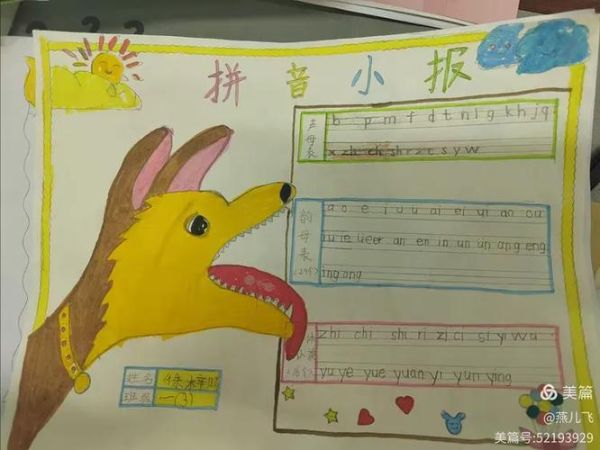 拼音小报
声母表
b p m f d t n l g k h j q
x zh ch sh r z c s y w
韵母表
a o e i u ü ai ei ui ao ou
iu ie üe er an en in un ün ang eng
ing ong
zhi chi shi ri zi ci si yi wu
yu ye yue yuan yi yun ying
姓名
班级 一(3)
美篇
@燕儿飞
美篇号:52193929